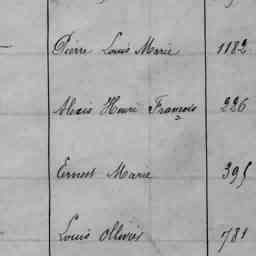 Pierre Louis Marie 1182
Alexis Henri François 226
Ernest Marie 395
Louis Ollivier 781